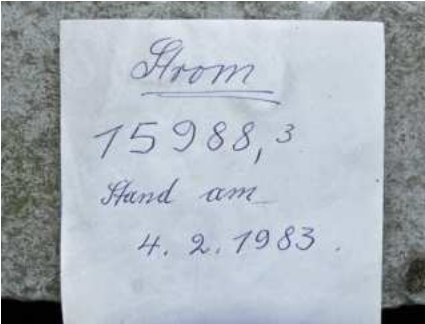 Strom
15988,3
Stand am
4. 2. 1983.